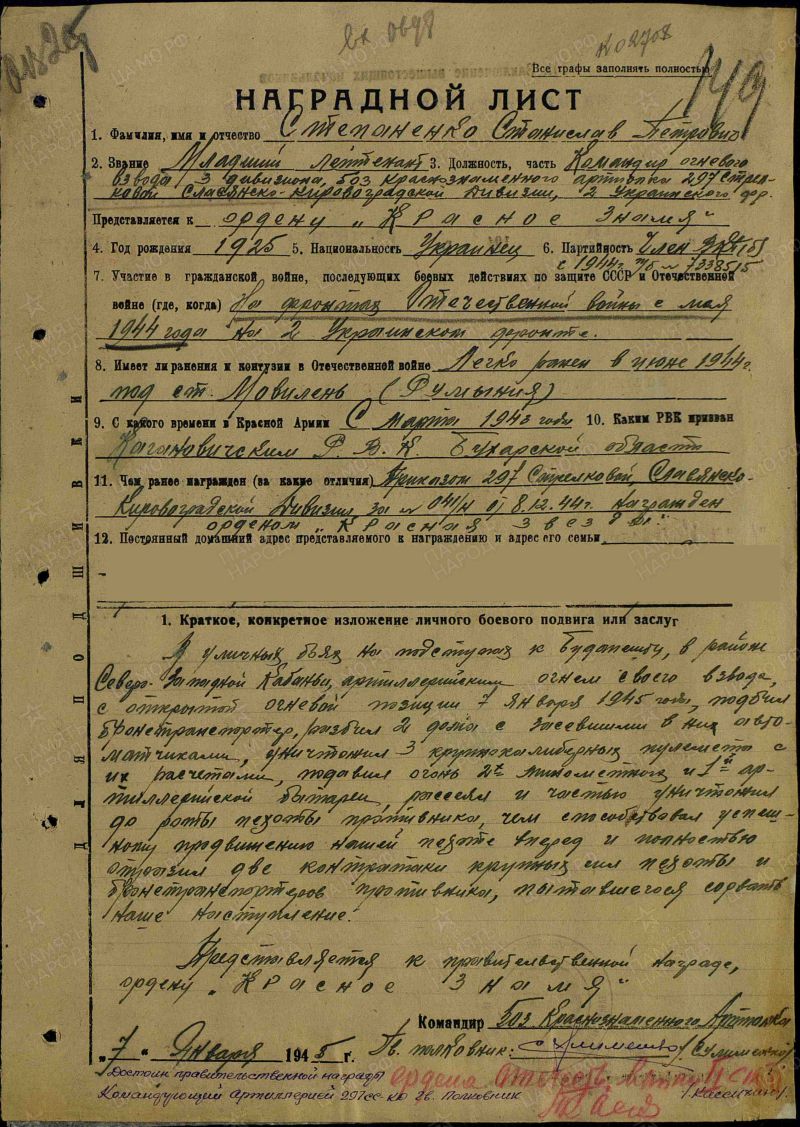 вх 0698
к 02708
Все графы заполнять полностью
149
НАГРАДНОЙ ЛИСТ
1. Фамилия, имя и отчество Степаненко Станислав Петрович
2. Звание Младший лейтенант 3. Должность, часть Командир огневого
взвода 3 дивизиона, 503 Краснознаменного артполка 297 Стрел-
ковой Славянско-Кировоградской Дивизии, 2 Украинского фр.
Представляется к ордену „Красное Знамя"
4. Год рождения 1925 5. Национальность Украинец 6. Партийность Член ВКП(б)
с 1944г. п/б № 7338515
7. Участие в гражданской войне, последующих боевых действиях по защите СССР и Отечественной
войне (где, когда) На фронтах Отечественной войны с мая
1944 года на 2 Украинском фронте.
8. Имеет ли ранения и контузии в Отечественной войне Легко ранен в июне 1944г.
под ст. Мовилень (Румыния)
9. С какого времени в Красной Армии С марта 1943 года 10. Каким РВК призван
Кагановичским Р.В.К. Бухарской области
11. Чем ранее награжден (за какие отличия) Приказом 297 Стрелковой, Славянско-
Кировоградской Дивизии, за № 041/н от 8.12.44г. награжден
орденом „Красная Звезда".
12. Постоянный домашний адрес представляемого к награждению и адрес его семьи
ДЛЯ ПОДШИВКИ
1. Краткое, конкретное изложение личного боевого подвига или заслуг
В уличных боях на подступах к Будапешту, в районе
Северо-Западной Кабаньи, артиллерийским огнем своего взвода,
с открытой огневой позиции 7 января 1945 года, подбил
бронетранспортер, разбил 2 дома с засевшими в них авто-
матчиками, уничтожил 3 крупнокалиберных пулемета с
их расчетами, подавил огонь 2х минометных и 1ой ар-
тиллерийской батареи, рассеял и частью уничтожил
до роты пехоты противника, чем способствовал успеш-
ному продвижению нашей пехоте вперед и полностью
отразил две контратаки крупных сил пехоты и
бронетранспортеров противника, пытавшегося сорвать
наше наступление.
Представляется к правительственной награде,
ордену „Красное Знамя"
Командир 503 Краснознаменного Артполка
„7" Января 1945 г. Гв. полковник: /Сулименко/
Достоин правительственной награды ордена Отечеств. Войны II ст
Командующий Артиллерией 297сс-ко Гв. Полковник